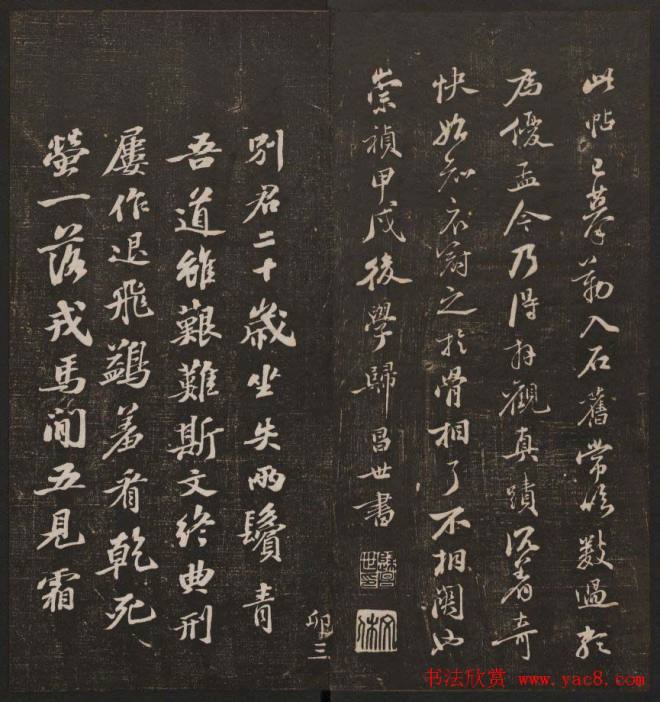 此帖已摹勒入石舊常臨數過於
為優孟今乃得再觀真蹟沉著奇
快始知衣冠之於骨相了不相關也
崇禎甲戌後學歸昌世書
文休
卯三
別君二十歲坐失兩鬢青
吾道雖艱難斯文終典刑
屢作退飛鷁羞看乾死
螢一落戎馬間五見霜
书法欣赏 www.yac8.com